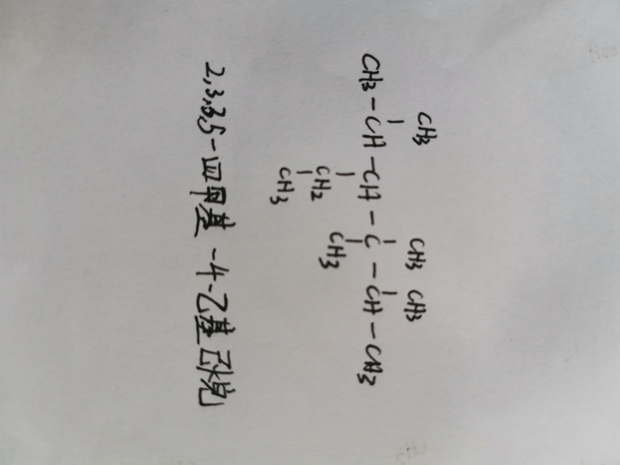 CH3 CH3 CH3
CH3-CH-CH-C-CH-CH3
CH2 CH3
CH3
2,3,3,5-四甲基-4-乙基己烷